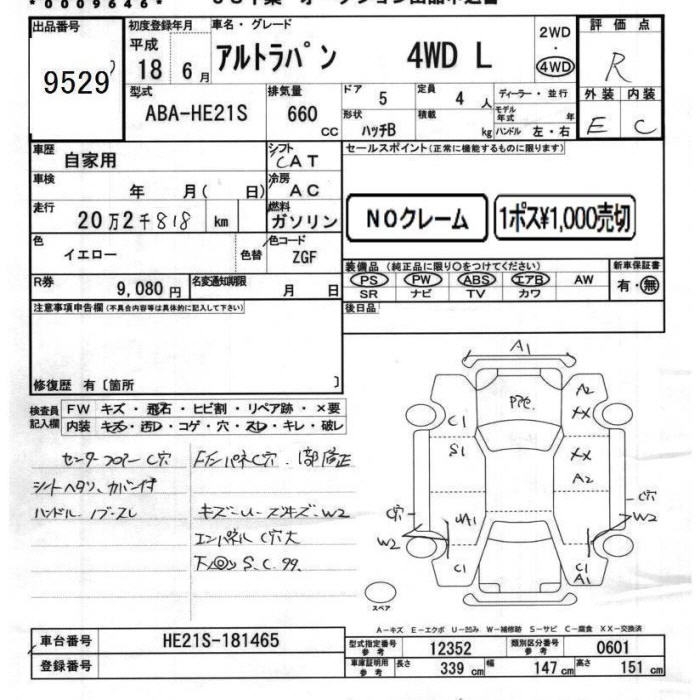 *0009646*
出品番号
9529
初度登録年月
平成
18 6 月
車名・グレード
アルトラパン 4WD L
2WD
・
4WD
評価点
R
外装 内装
E C
型式
ABA-HE21S
排気量
660 CC
ドア 5
定員 4 人
ディーラー・並行
モデル年式 年
形状 ハッチB
積載 kg
ハンドル 左・右
車歴 自家用
シフト CAT
セールスポイント(正常に機能するものに限ります)
車検 年 月( 日)
冷房 AC
走行 20万2千818 km
燃料 ガソリン
NOクレーム
1ポス¥1,000売切
色 イエロー
色替
色コード ZGF
装備品(純正品に限り〇をつけてください)
新車保証書
PS PW ABS エアB AW
有・無
SR ナビ TV カワ
R券 9,080 円
名変通知期限 月 日
後日品
注意事項申告欄(不具合内容等は具体的に記入して下さい)
修復歴 有〔箇所 〕
検査員記入欄
FW キズ・飛石・ヒビ割・リペア跡・×要
内装 キズ・汚レ・コゲ・穴・スレ・キレ・破レ
センターフロアーC穴
シートヘタリ、カバー付
ハンドル、ノブ・スレ
キズ・U・スリキズ・W2
エンパネルC穴大
下回りS.C.99.
A1
A2
XX
C1
S1
XX
A2
UA1
C穴
W2
C穴
W2
C1
C1
A1
スペア
A-キズ E-エクボ U-凹み W-補修跡 S-サビ C-腐食 XX-交換済
車台番号 HE21S-181465
型式指定番号 参考 12352
類別区分番号 参考 0601
登録番号
車庫証明用 参考
長さ 339 cm
幅 147 cm
高さ 151 cm